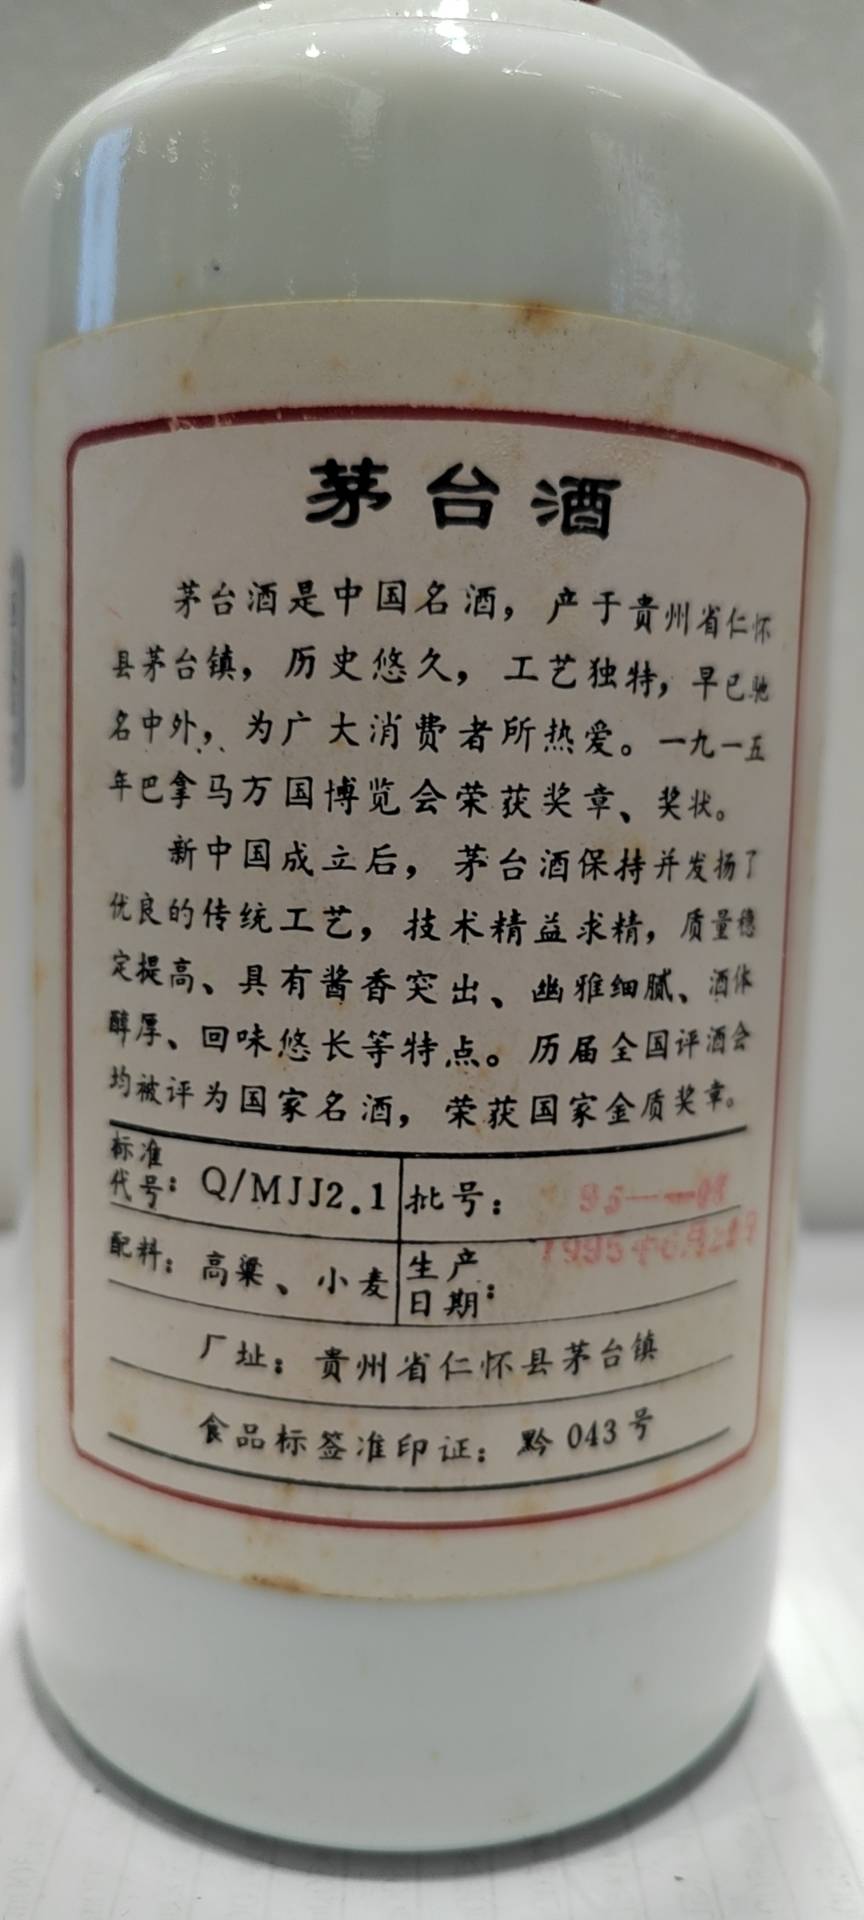 茅台酒
茅台酒是中国名酒，产于贵州省仁怀
县茅台镇，历史悠久，工艺独特，早已驰
名中外，为广大消费者所热爱。一九一五
年巴拿马万国博览会荣获奖章、奖状。
新中国成立后，茅台酒保持并发扬了
优良的传统工艺，技术精益求精，质量稳
定提高、具有酱香突出、幽雅细腻、酒体
醇厚、回味悠长等特点。历届全国评酒会
均被评为国家名酒，荣获国家金质奖章。
标准
代号：Q/MJJ2.1 批号：
配料：高粱、小麦
生产
日期： 1995年6月
厂址：贵州省仁怀县茅台镇
食品标签准印证：黔043号